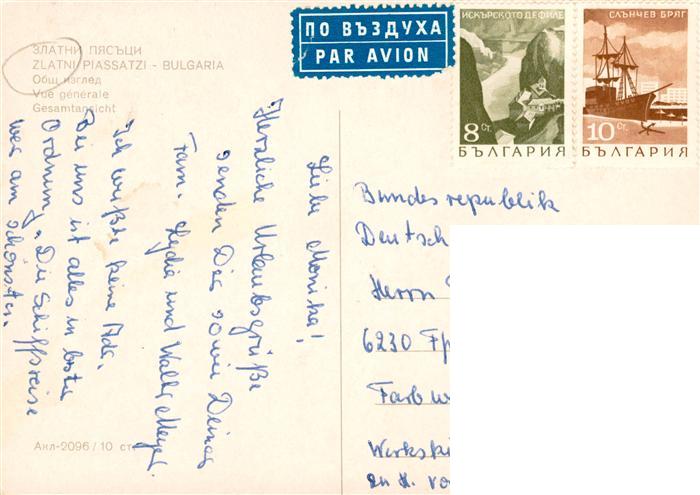 ЗЛАТНИ ПЯСЪЦИ
ZLATNI PIASSATZI - BULGARIA
Общ изглед
Vue générale
Gesamtansicht
ПО ВЪЗДУХА
PAR AVION
ИСКЪРСКОТО ДЕФИЛЕ
8 СТ.
БЪЛГАРИЯ
СЛЪНЧЕВ БРЯГ
10 СТ.
БЪЛГАРИЯ
Liebe Monika!
Herzliche Urlaubsgrüße
senden Dir sowie Deiner
Fam. Lydia und Walter Meyer.
Ich wußte keine Adr.
Bei uns ist alles in bester
Ordnung. Die Schiffsreise
war am schönsten.
Bundesrepublik
Deutsch
Herrn
6230 F
Farbw
Werkski
zu H. vo
Акл-2096 / 10 ст